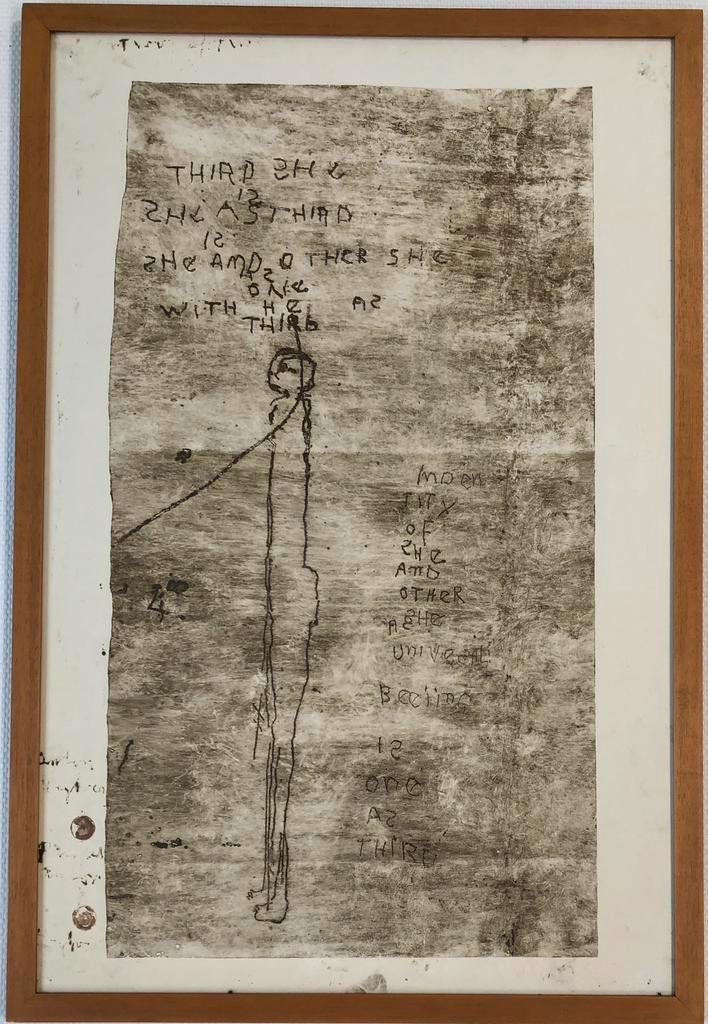 THIRD SHE
IS
SHE AS THIRD
IS
SHE AND OTHER SHE
AS
ONE
WITH HE AS
THIRD
4
OF
SHE
AND
OTHER
SHE
AS
BEEIING
IS
ONE
AS
THIRD